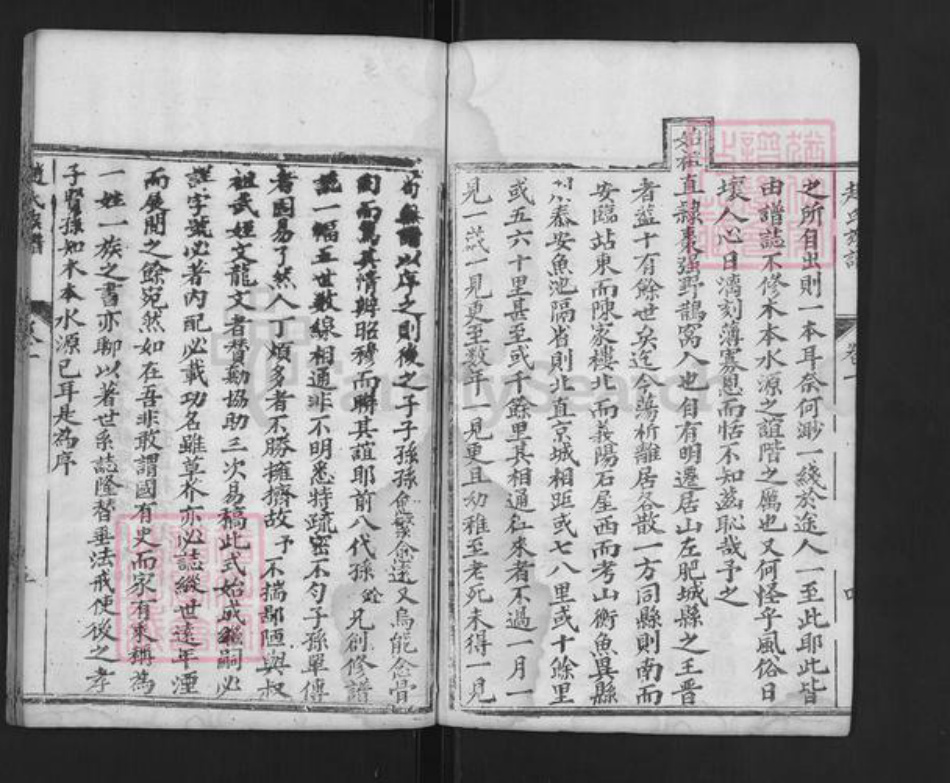 之所自出則一本耳奈何渺一綫於途人一至此耶此皆
由譜誌不修木本水源之誼階之厲也又何怪乎風俗日
壞人心日漓刻薄寡恩而恬不知羞恥哉予之
始祖直隸棗强野鵲窩人也自有明遷居山左肥城縣之王晋
者蓋十有餘世矣迄今蕩析離居各散一方同縣則南而
安臨站東而陳家樓北而義陽石屋西而考山衡魚異縣
則泰安魚池隔省則北直京城相距或七八里或十餘里
或五六十里甚至或千餘里其相通往來者不過一月一
見一歲一見更至数年一見更且幼稚至老死未得一見
苟無譜以序之則後之子子孫孫愈繁愈遠又烏能念骨
肉而篤其情辨昭穆而聯其誼耶前八代孫 凡創修譜
誌一幅五世数線相通非不明悉特疏密不勻子孫單傳
者固易了然人丁煩多者不勝擁擠故予不揣鄙陋與叔
祖武姪文龍文者贊勷協助三次易稿此式始成繼嗣必
謹字號必著內配必載功名雖草芥亦必誌縱世遠年湮
而展閱之餘宛然如在吾非敢謂國有史而家有乘稱為
一姓一族之書亦聊以著世系誌隆替垂法戒使後之孝
子賢孫如木本水源已耳是為序
趙氏族譜 卷一